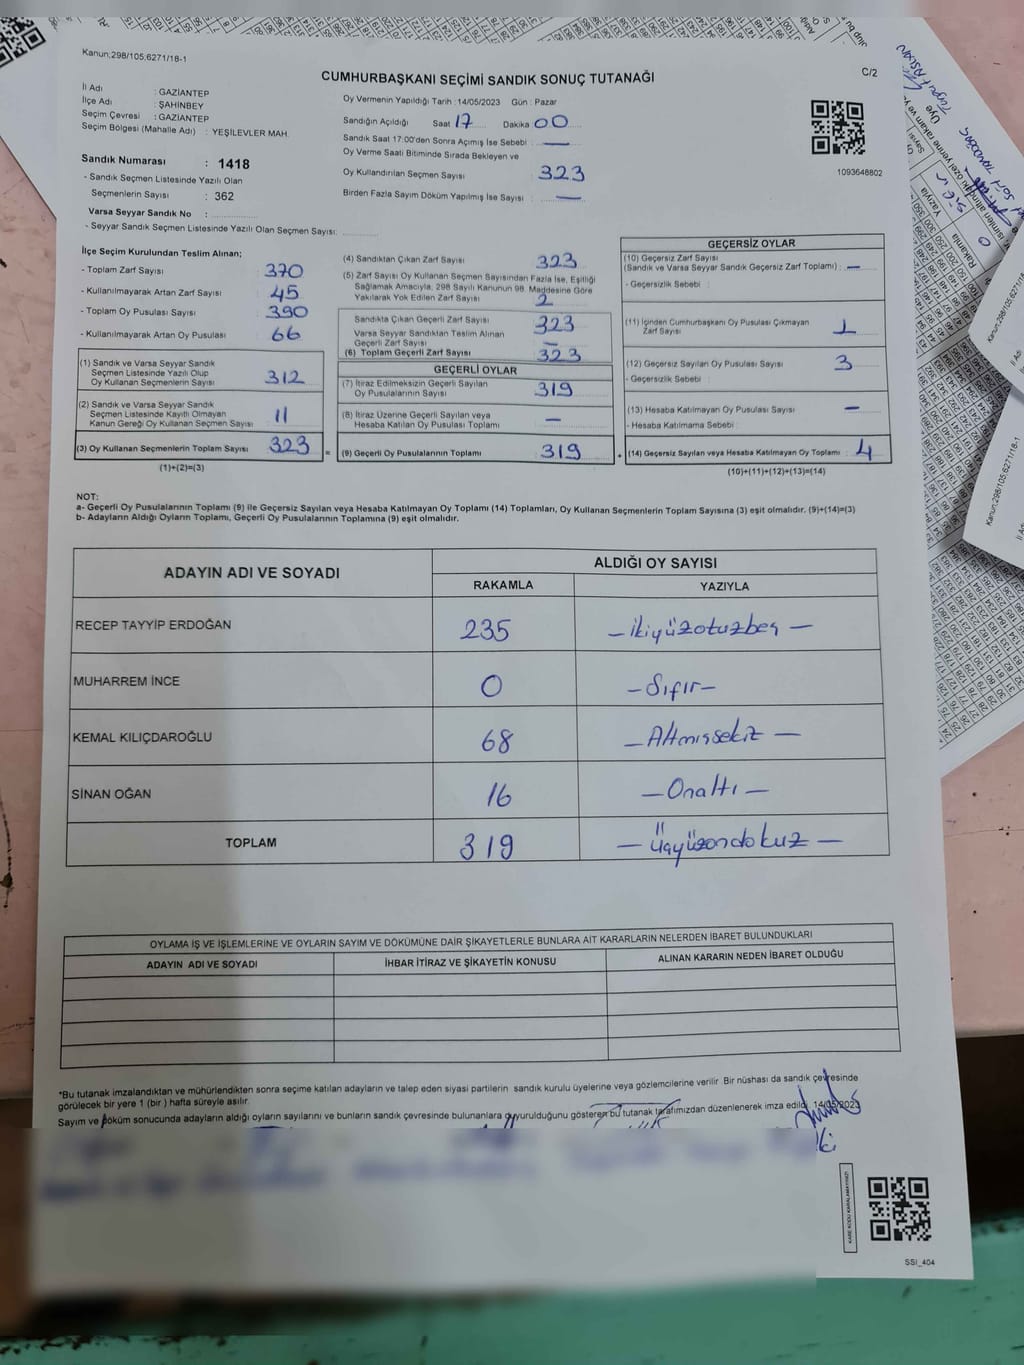 Kanun;298/105;6271/18-1
CUMHURBAŞKANI SEÇİMİ SANDIK SONUÇ TUTANAĞI
C/2
İl Adı : GAZİANTEP
İlçe Adı : ŞAHİNBEY
Seçim Çevresi : GAZİANTEP
Seçim Bölgesi (Mahalle Adı) : YEŞİLEVLER MAH.
Sandık Numarası : 1418
- Sandık Seçmen Listesinde Yazılı Olan
Seçmenlerin Sayısı : 362
Varsa Seyyar Sandık No :
- Seyyar Sandık Seçmen Listesinde Yazılı Olan Seçmen Sayısı:
Oy Vermenin Yapıldığı Tarih :14/05/2023 Gün : Pazar
Sandığın Açıldığı Saat 17 Dakika 00
Sandık Saat 17:00'den Sonra Açımış İse Sebebi : —
Oy Verme Saati Bitiminde Sırada Bekleyen ve
Oy Kullandırılan Seçmen Sayısı 323
Birden Fazla Sayım Döküm Yapılmış İse Sayısı : —
1093648802
İlçe Seçim Kurulundan Teslim Alınan;
- Toplam Zarf Sayısı : 370
- Kullanılmayarak Artan Zarf Sayısı : 45
- Toplam Oy Pusulası Sayısı : 390
- Kullanılmayarak Artan Oy Pusulası : 66
(1) Sandık ve Varsa Seyyar Sandık
Seçmen Listesinde Yazılı Olup
Oy Kullanan Seçmenlerin Sayısı : 312
(2) Sandık ve Varsa Seyyar Sandık
Seçmen Listesinde Kayıtlı Olmayan
Kanun Gereği Oy Kullanan Seçmen Sayısı : 11
(3) Oy Kullanan Seçmenlerin Toplam Sayısı : 323
(1)+(2)=(3)
(4) Sandıktan Çıkan Zarf Sayısı : 323
(5) Zarf Sayısı Oy Kullanan Seçmen Sayısından Fazla İse, Eşitliği
Sağlamak Amacıyla, 298 Sayılı Kanunun 98. Maddesine Göre
Yakılarak Yok Edilen Zarf Sayısı : 2
Sandıkta Çıkan Geçerli Zarf Sayısı : 323
Varsa Seyyar Sandıktan Teslim Alınan
Geçerli Zarf Sayısı : —
(6) Toplam Geçerli Zarf Sayısı : 323
GEÇERLİ OYLAR
(7) İtiraz Edilmeksizin Geçerli Sayılan
Oy Pusulalarının Sayısı : 319
(8) İtiraz Üzerine Geçerli Sayılan veya
Hesaba Katılan Oy Pusulası Toplamı : —
= (9) Geçerli Oy Pusulalarının Toplamı : 319 +
GEÇERSİZ OYLAR
(10) Geçersiz Zarf Sayısı
(Sandık ve Varsa Seyyar Sandık Geçersiz Zarf Toplamı) : —
- Geçersizlik Sebebi :
(11) İçinden Cumhurbaşkanı Oy Pusulası Çıkmayan
Zarf Sayısı : 1
(12) Geçersiz Sayılan Oy Pusulası Sayısı : 3
- Geçersizlik Sebebi :
(13) Hesaba Katılmayan Oy Pusulası Sayısı : —
- Hesaba Katılmama Sebebi :
(14) Geçersiz Sayılan veya Hesaba Katılmayan Oy Toplamı : 4
(10)+(11)+(12)+(13)=(14)
NOT:
a- Geçerli Oy Pusulalarının Toplamı (9) ile Geçersiz Sayılan veya Hesaba Katılmayan Oy Toplamı (14) Toplamları, Oy Kullanan Seçmenlerin Toplam Sayısına (3) eşit olmalıdır. (9)+(14)=(3)
b- Adayların Aldığı Oyların Toplamı, Geçerli Oy Pusulalarının Toplamına (9) eşit olmalıdır.
ADAYIN ADI VE SOYADI ALDIĞI OY SAYISI
RAKAMLA YAZIYLA
RECEP TAYYİP ERDOĞAN 235 —ikiyüzotuzbeş —
MUHARREM İNCE 0 —Sıfır—
KEMAL KILIÇDAROĞLU 68 —Altmışsekiz —
SİNAN OĞAN 16 —Onaltı —
TOPLAM 319 — Üçyüzondokuz —
OYLAMA İŞ VE İŞLEMLERİNE VE OYLARIN SAYIM VE DÖKÜMÜNE DAİR ŞİKAYETLERLE BUNLARA AİT KARARLARIN NELERDEN İBARET BULUNDUKLARI
ADAYIN ADI VE SOYADI İHBAR İTİRAZ VE ŞİKAYETİN KONUSU ALINAN KARARIN NEDEN İBARET OLDUĞU
*Bu tutanak imzalandıktan ve mühürlendikten sonra seçime katılan adayların ve talep eden siyasi partilerin sandık kurulu üyelerine veya gözlemcilerine verilir. Bir nüshası da sandık çevresinde
görülecek bir yere 1 (bir ) hafta süreyle asılır.
Sayım ve döküm sonucunda adayların aldığı oyların sayılarını ve bunların sandık çevresinde bulunanlara duyurulduğunu gösteren bu tutanak tarafımızdan düzenlenerek imza edildi. 14/05/2023
KARE KODU KARALAMAYINIZ!
SSI_404
Kanun;298/105;6271/18-1